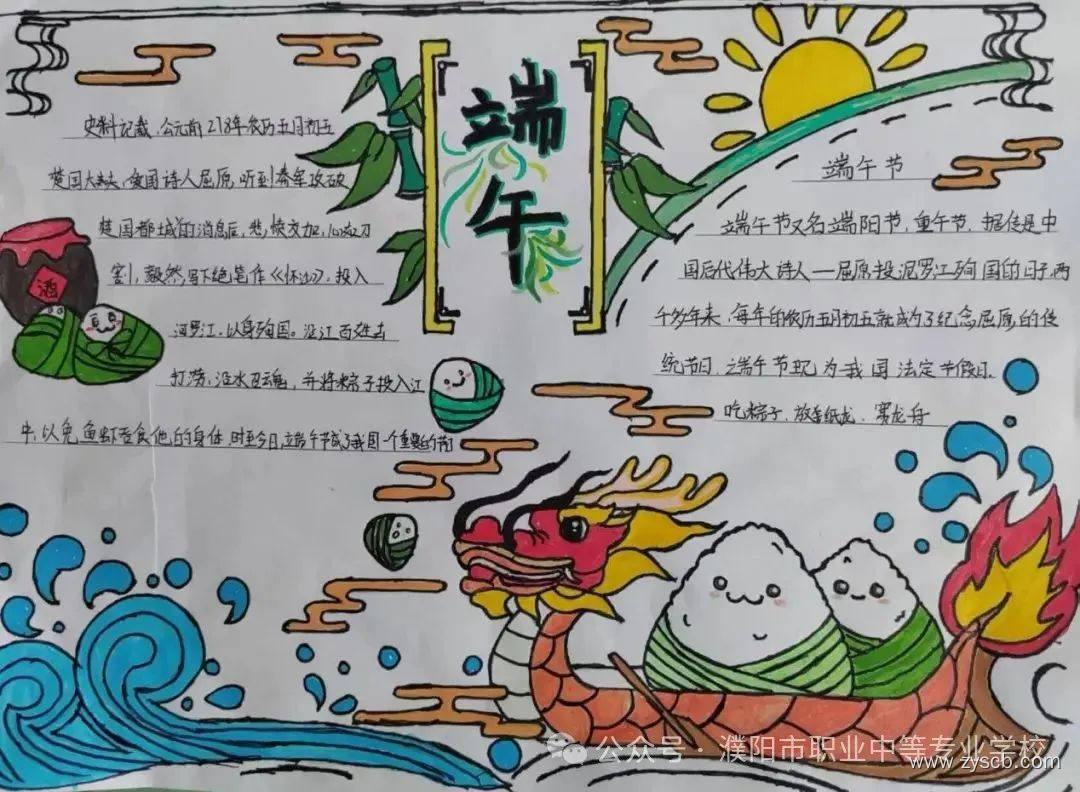 端午
史料记载,公元前278年农历五月初五
楚国大夫,爱国诗人屈原,听到秦军攻破
楚国都城的消息后,悲愤交加,心如刀
割,毅然写下绝笔作《怀沙》,投入
汨罗江,以身殉国。沿江百姓去
打捞,沿水召魂,并将粽子投入江
中,以免鱼虾吞食他的身体,时至今日,端午节成了我国一个重要的节
酒
端午节
端午节又名端阳节,重午节,据传是中
国古代伟大诗人一屈原投汨罗江殉国的日子,两
千多年来,每年的农历五月初五就成为了纪念屈原的传
统节日,端午节现为我国法定节假日,
吃粽子、放纸龙、赛龙舟
公众号·濮阳市职业中等专业学校
www.zyscb.com